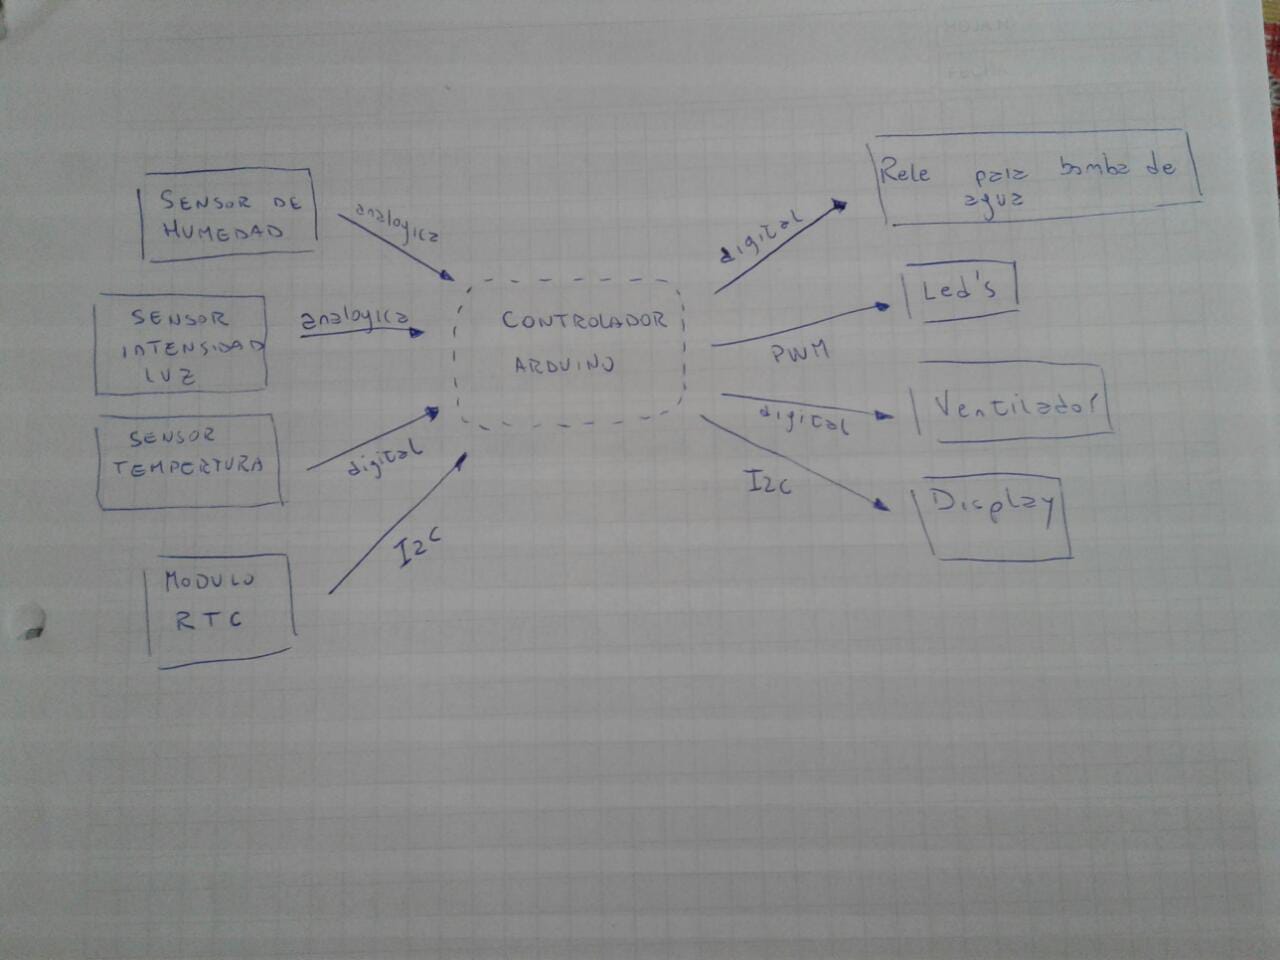 SENSOR DE
HUMEDAD
analogica
SENSOR
INTENSIDAD
LUZ
analogica
SENSOR
TEMPERTURA
digital
MODULO
RTC
I2C
CONTROLADOR
ARDUINO
digital
Rele para bomba de
agua
PWM
Led's
digital
Ventilador
I2C
Display